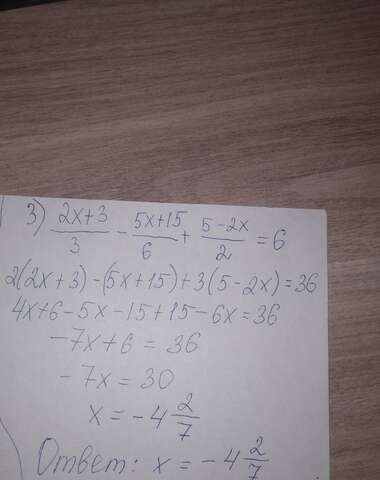 3) (2x+3)/3 - (5x+15)/6 + (5-2x)/2 = 6
2(2x+3)-(5x+15)+3(5-2x)=36
4x+6-5x-15+15-6x=36
-7x+6=36
-7x=30
x=-4 2/7
Ответ: x=-4 2/7